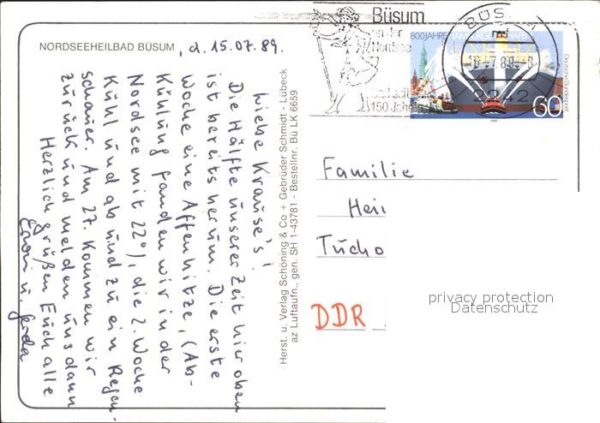 NORDSEEHEILBAD BÜSUM, d. 15.07.89.
Liebe Krause's!
Die Hälfte unserer Zeit hier oben
ist bereits herum. Die erste
Woche eine Affenhitze, (Ab-
kühlung fanden wir in der
Nordsee mit 22°), die 2. Woche
kühl und ab und zu ein Regen-
schauer. Am 27. kommen wir
zurück und melden uns dann
Herzlich grüßen Euch alle
Erwin u. Gerda
Herst. u. Verlag Schöning & Co + Gebrüder Schmidt - Lübeck
az Luftaufn., gen. SH 1-43781 - Bestellnr. Bü LK 6689
Büsum
an der
Nordsee
150 Jahre
BÜS
7.89
2242
800 JAHRE
60
Familie
Hei
Tucho
DDR
privacy protection
Datenschutz